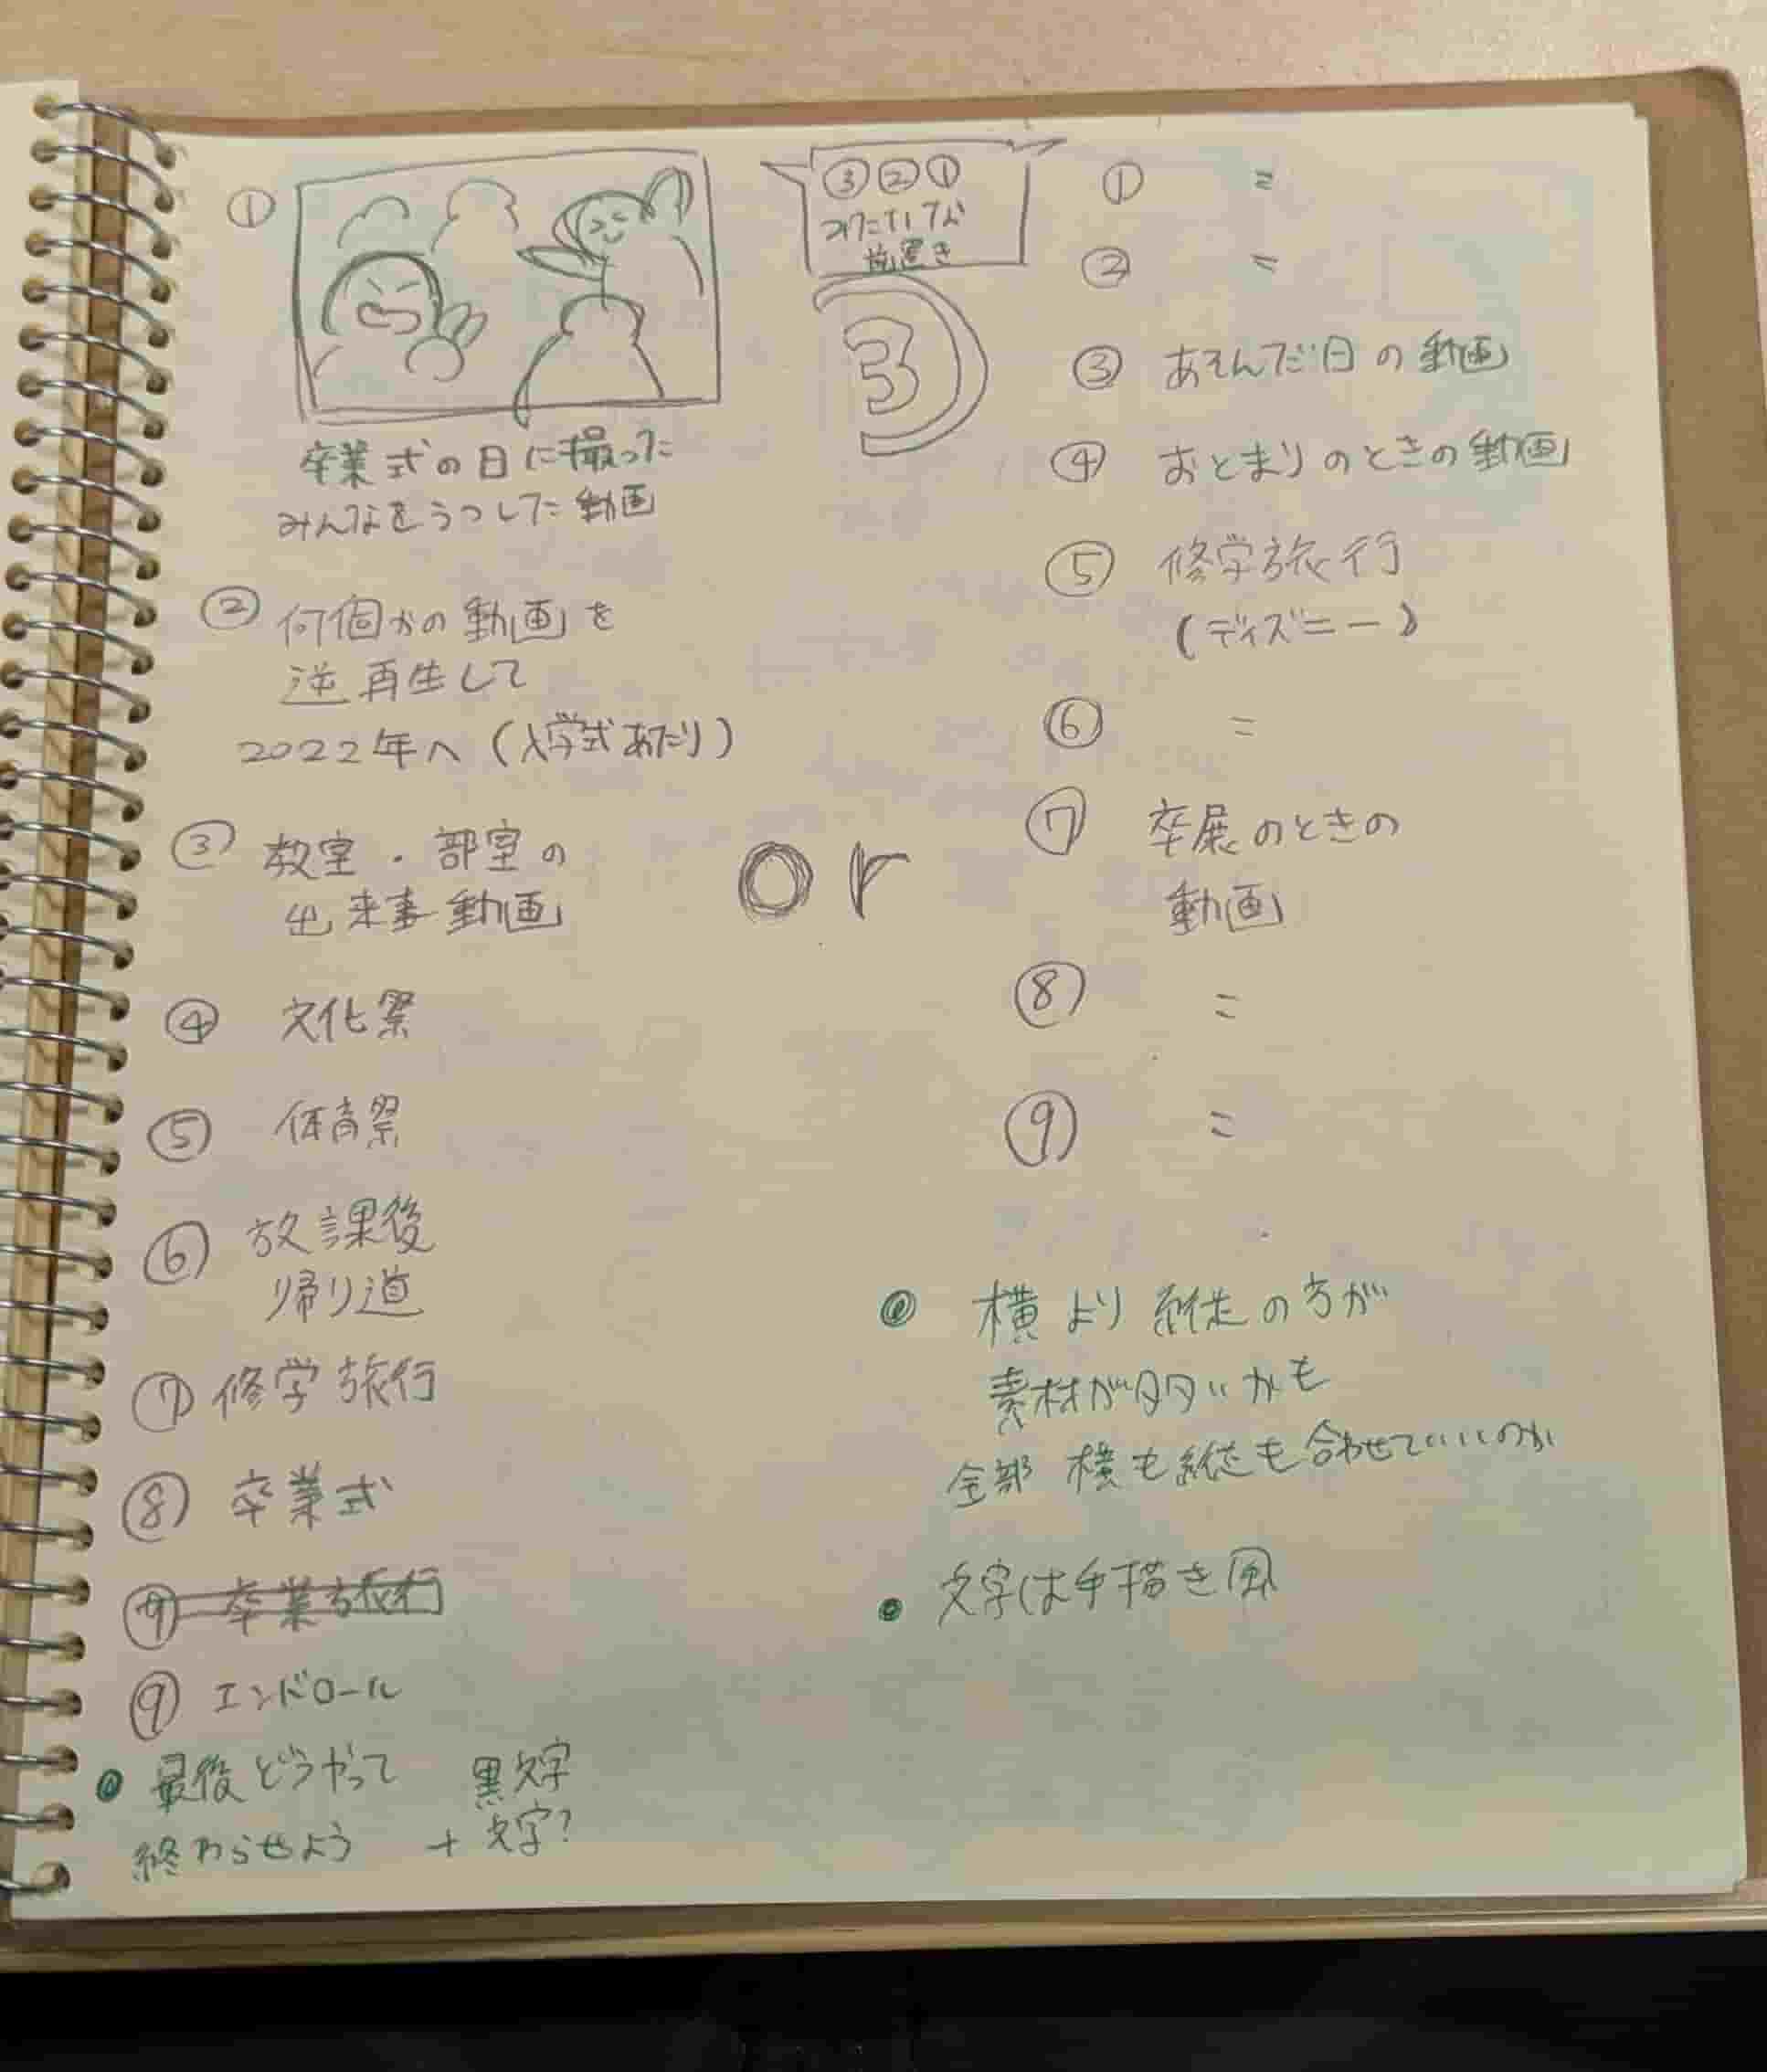 ①
卒業式の日に撮った
みんなをうつした動画
② 何個かの動画を
逆再生して
2022年へ (入学式あたり)
③ 教室・部室の
出来事動画
④ 文化祭
⑤ 体育祭
⑥ 放課後
帰り道
⑦ 修学旅行
⑧ 卒業式
⑨ 卒業旅行
⑨ エンドロール
最後どうやって
終わらせよう
黒文字
+ 文字?
③②①
置き
3
or
① =
② =
③ あそんだ日の動画
④ おとまりのときの動画
⑤ 修学旅行
(ディズニー)
⑥ =
⑦ 卒展のときの
動画
⑧ =
⑨ =
横より縦の方が
素材が多いかも
全部 横も縦も合わせていいのか
文字は手描き風